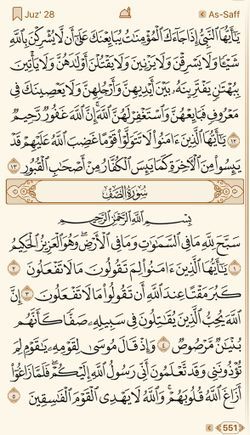 Juz' 28 As-Saff
يَٰٓأَيُّهَا ٱلنَّبِىُّ إِذَا جَآءَكَ ٱلْمُؤْمِنَٰتُ يُبَايِعْنَكَ عَلَىٰٓ أَن لَّا يُشْرِكْنَ بِٱللَّهِ
شَيْـًٔا وَلَا يَسْرِقْنَ وَلَا يَزْنِينَ وَلَا يَقْتُلْنَ أَوْلَٰدَهُنَّ وَلَا يَأْتِينَ
بِبُهْتَٰنٍ يَفْتَرِينَهُۥ بَيْنَ أَيْدِيهِنَّ وَأَرْجُلِهِنَّ وَلَا يَعْصِينَكَ فِى
مَعْرُوفٍ فَبَايِعْهُنَّ وَٱسْتَغْفِرْ لَهُنَّ ٱللَّهَ إِنَّ ٱللَّهَ غَفُورٌ رَّحِيمٌ
١٢ يَٰٓأَيُّهَا ٱلَّذِينَ ءَامَنُوا۟ لَا تَتَوَلَّوْا۟ قَوْمًا غَضِبَ ٱللَّهُ عَلَيْهِمْ قَدْ
يَئِسُوا۟ مِنَ ٱلْءَاخِرَةِ كَمَا يَئِسَ ٱلْكُفَّارُ مِنْ أَصْحَٰبِ ٱلْقُبُورِ ١٣
سُورَةُ الصَّفِّ
بِسْمِ ٱللَّهِ ٱلرَّحْمَٰنِ ٱلرَّحِيمِ
سَبَّحَ لِلَّهِ مَا فِى ٱلسَّمَٰوَٰتِ وَمَا فِى ٱلْأَرْضِ وَهُوَ ٱلْعَزِيزُ ٱلْحَكِيمُ
١ يَٰٓأَيُّهَا ٱلَّذِينَ ءَامَنُوا۟ لِمَ تَقُولُونَ مَا لَا تَفْعَلُونَ ٢
كَبُرَ مَقْتًا عِندَ ٱللَّهِ أَن تَقُولُوا۟ مَا لَا تَفْعَلُونَ ٣ إِنَّ
ٱللَّهَ يُحِبُّ ٱلَّذِينَ يُقَٰتِلُونَ فِى سَبِيلِهِۦ صَفًّا كَأَنَّهُم
بُنْيَٰنٌ مَّرْصُوصٌ ٤ وَإِذْ قَالَ مُوسَىٰ لِقَوْمِهِۦ يَٰقَوْمِ لِمَ
تُؤْذُونَنِى وَقَد تَّعْلَمُونَ أَنِّى رَسُولُ ٱللَّهِ إِلَيْكُمْ فَلَمَّا زَاغُوٓا۟
أَزَاغَ ٱللَّهُ قُلُوبَهُمْ وَٱللَّهُ لَا يَهْدِى ٱلْقَوْمَ ٱلْفَٰسِقِينَ ٥
551